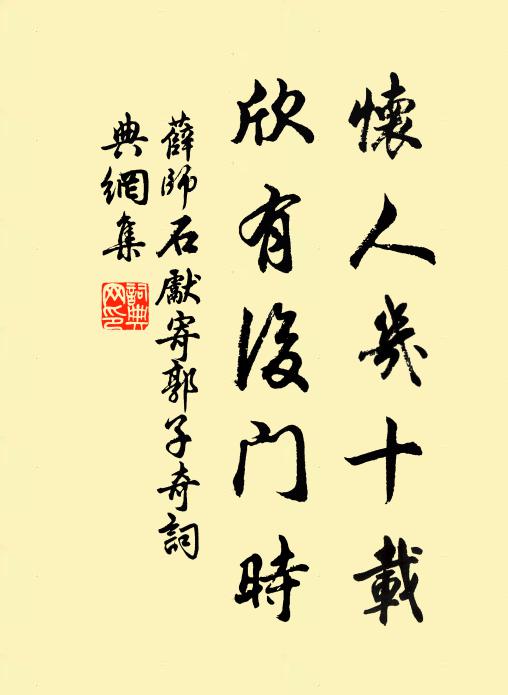 懷人幾十載
欣有後門時
薛師石獻寄郭子奇詞
典網集
詞典
网印